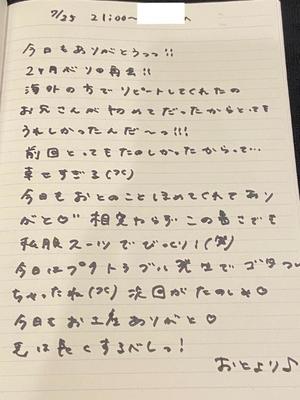 7/25 21:00〜 へ
今日もありがとうっっ!!
2ヶ月ぶりの再会!!
海外の方でリピートしてくれたの
お兄さんが初めてだったからとっても
うれしかったんだ〜っ!!!
前回とってもたのしかったからって…
幸せすぎる(泣)
今日もおとのことほめてくれてあり
がと♡ 相変わらずこの暑さでも
私服スーツでびっくり!(笑)
今日はプチトラブル発生でゴタつい
ちゃったね(泣) 次回がたのしみ♡
今日もお土産ありがと♡
毛は長くするべしっ!
おとより♪